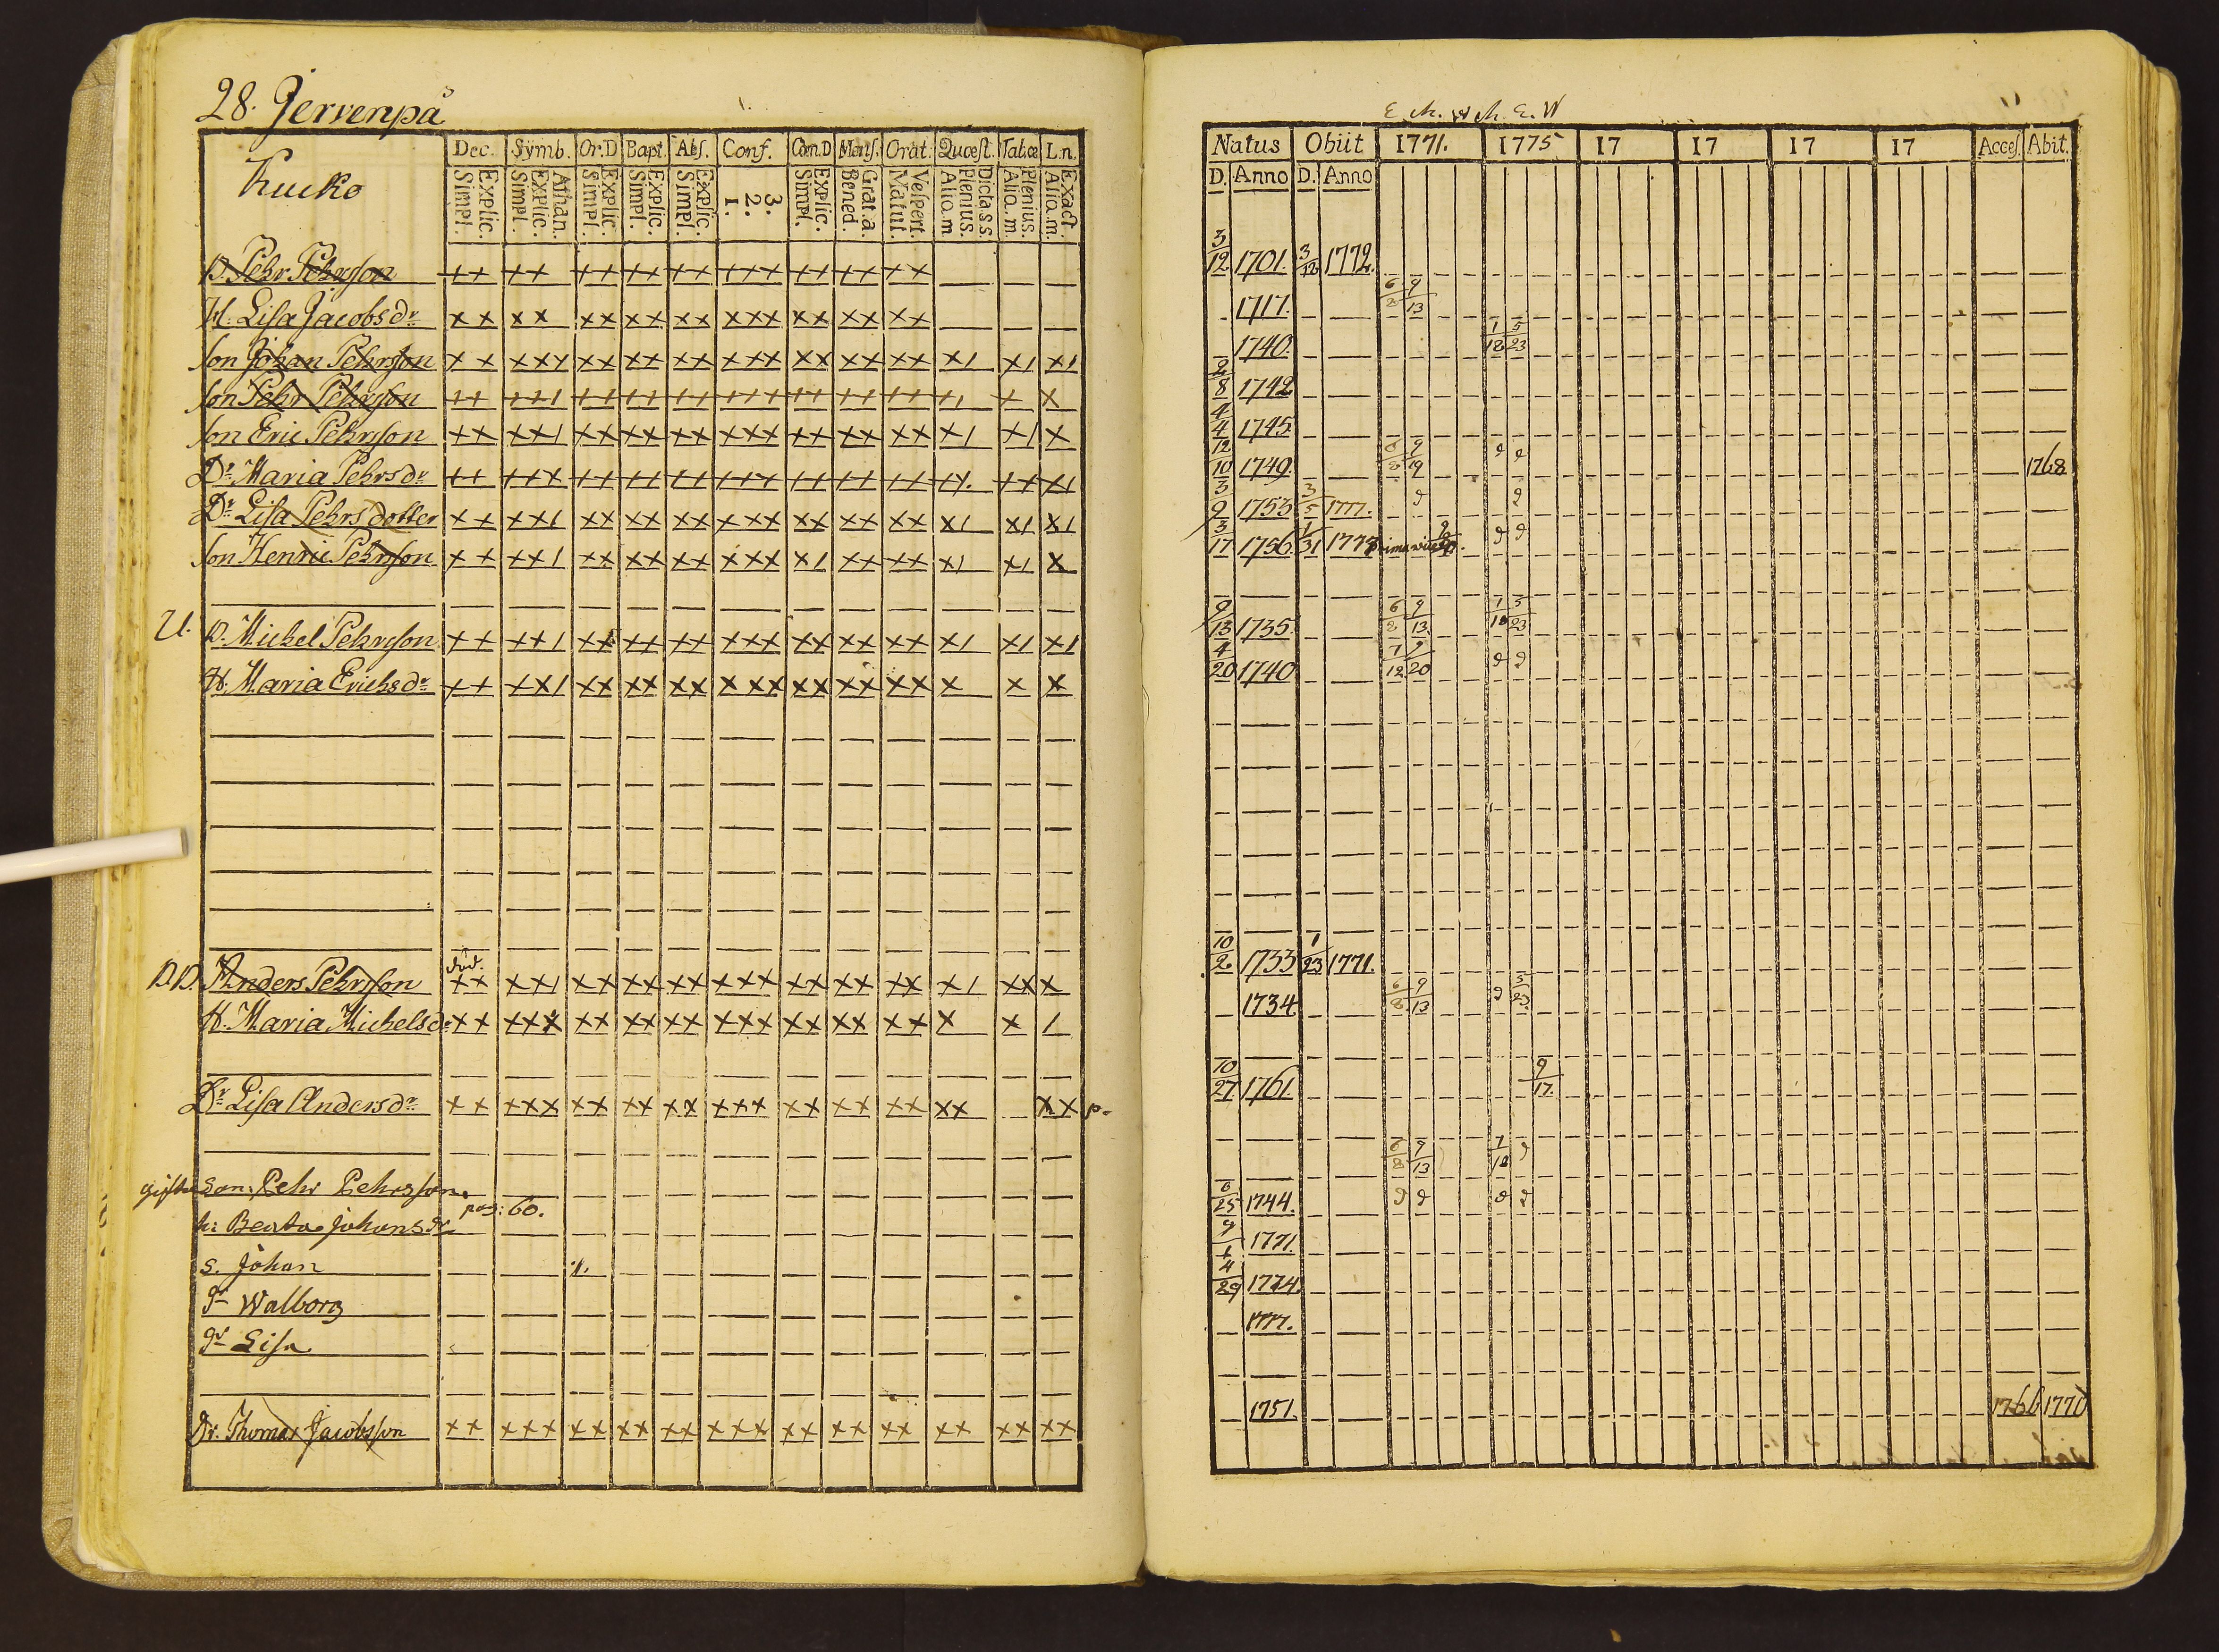 28. Jervenpå
Dec. Symb. Or.D Bapt. Abs. Conf. Cœn.D Mens. Orat. Quæst. Tab.œ L.n.
Kucko
Explic. Simpl. Athan. Explic. Simpl. Explic. Simpl. Explic. Simpl. Explic. Simpl. 3. 2. 1. Explic. Simpl. Grat.a. Bened. Vespert. Matut. Dicta s.s. Plenius. Aliq.m Plenius. Aliq.m. Exact. Aliq.m.
B. Pehr Pehrsson
H. Lisa Jacobsdr
son Johan Pehrsson
son Pehr Pehrsson
son Eric Pehrsson
Dr Maria Pehrsdr
Dr Lisa Pehrsdotter
son Henric Pehrsson
U. B. Michel Pehrsson
H. Maria Erichsdr
död.
Anders Pehrsson
H. Maria Michelsdr
Dr Lisa Andersdr p.
gifte Son. Pehr Pehrsson
pag: 60.
h: Beata Johansdr
s. Johan
dr Walborg
dr Lisa
Dr. Thomas Jacobsson
Natus Obiit 1771. 1775 17 17 17 17 Acces. Abit.
D. Anno D. Anno
3/12 1701. 3/12 1772.
1717. 6/8 9/13
1740. 1/18 5/23
2/8 1742
4/4 1745
12/10 1749. 6/8 9/19 1768
3/9 1753 3/5 1777.
3/17 1756 1/31 1773
9/13 1735. 6/8 9/13 1/18 5/23
4/20 1740 7/12 9/20
10/2 1733 1/23 1771.
1734 6/8 9/13 5/23
10/27 1761. 9/17
6/8 9/13 1/18
6/25 1744.
9/1 1771.
4/29 1774.
1777.
1751. 1766 1770